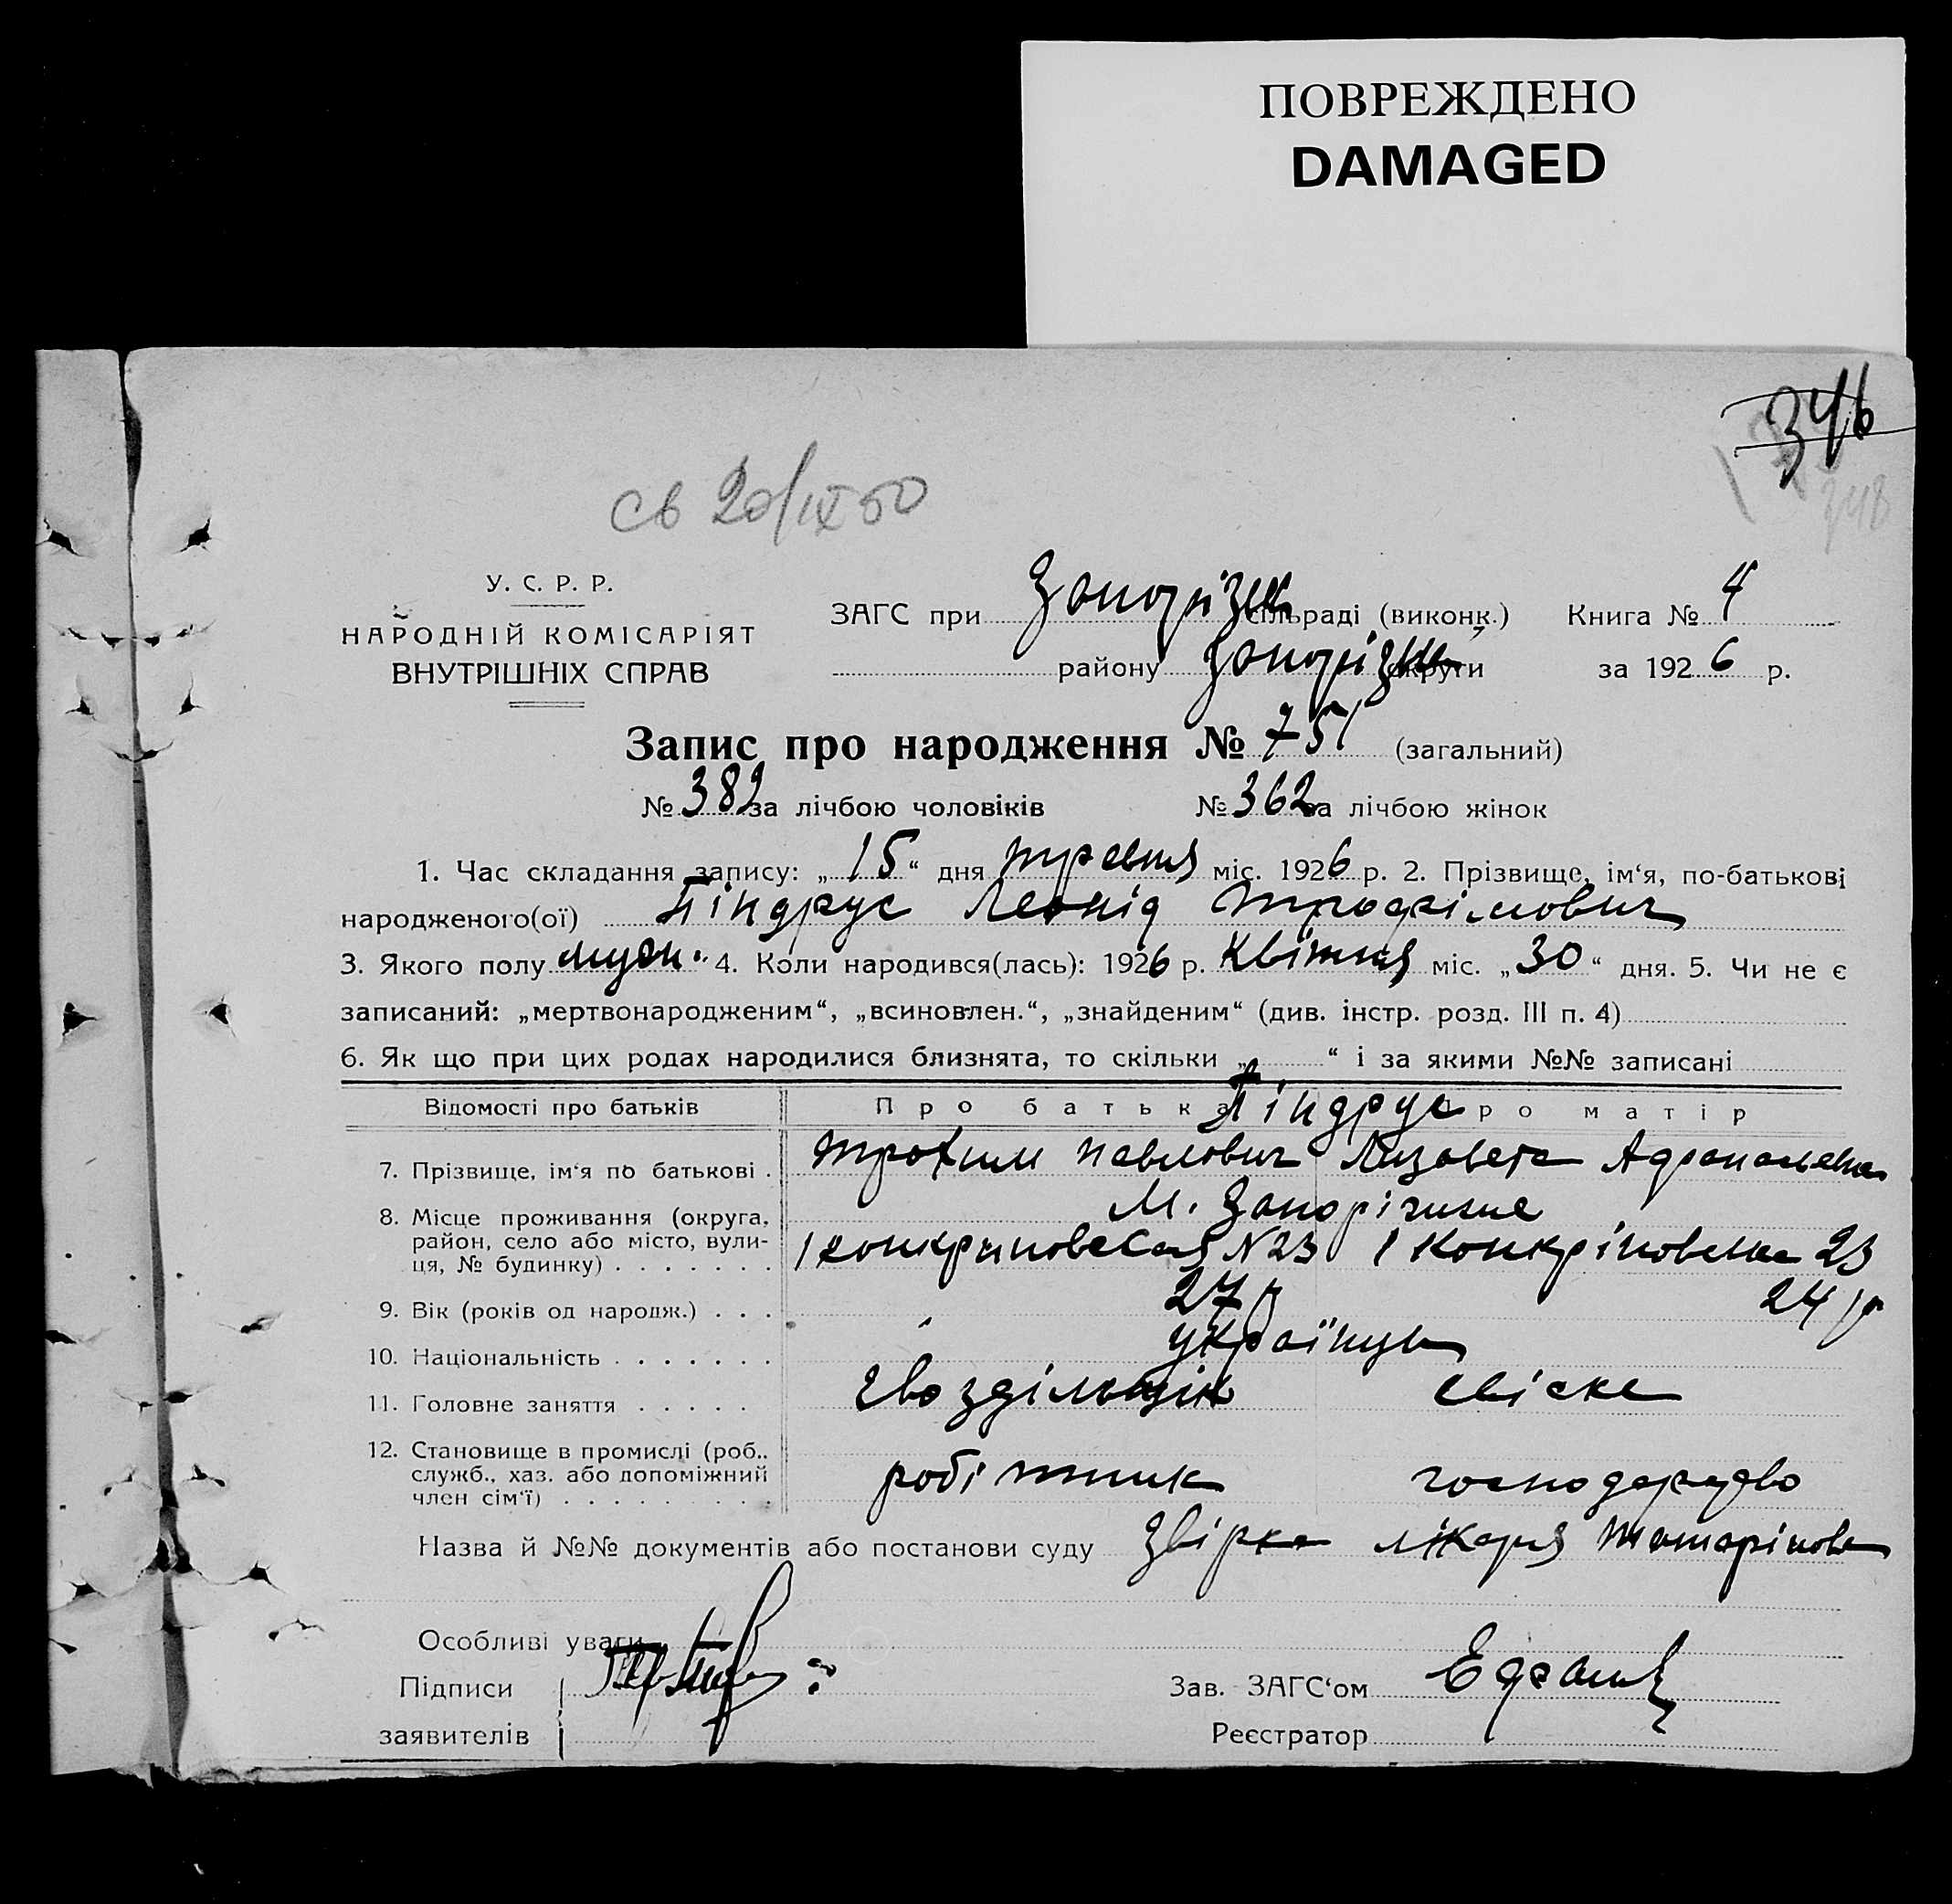 ПОВРЕЖДЕНО
DAMAGED
346
348
св 20/IX 50
У. С. Р. Р.
НАРОДНІЙ КОМІСАРІЯТ
ВНУТРІШНІХ СПРАВ
ЗАГС при Запоріжк сільраді (виконк.) Книга № 4
району Запоріжк округи за 1926 р.
Запис про народження № 751 (загальний)
№ 389 за лічбою чоловіків № 362 за лічбою жінок
1. Час складання запису: „15“ дня травня міс. 1926 р. 2. Прізвище, ім‘я, по-батькові
народженого(ої) Піндрус Леонід Трофімович
3. Якого полу муж. 4. Коли народився(лась): 1926 р. Квітня міс. „30“ дня. 5. Чи не є
записаний: „мертвонародженим“, „всиновлен.“, „знайденим“ (див. інстр. розд. III п. 4)
6. Як що при цих родах народилися близнята, то скільки „ “ і за якими №№ записані
Відомості про батьків Про батька Піндрус Про матір
7. Прізвище, ім‘я по батькові . Трохим Павлович Лизавета
8. Місце проживання (округа, м. Запоріжжє
район, село або місто, вули-
ця, № будинку) . . . . . . . N 23 23
9. Вік (років од народж.) . . . 27 р 24 р
10. Національність . . . . . . . українці
11. Головне заняття . . . . . гвоздільщік свіске
12. Становище в промислі (роб.,
служб., хаз. або допоміжний робітник господарство
член сім‘ї) . . . . . . . . .
Назва й №№ документів або постанови суду лікаря Татарінова
Особливі уваги
Підписи Зав. ЗАГС‘ом
заявителів Реєстратор